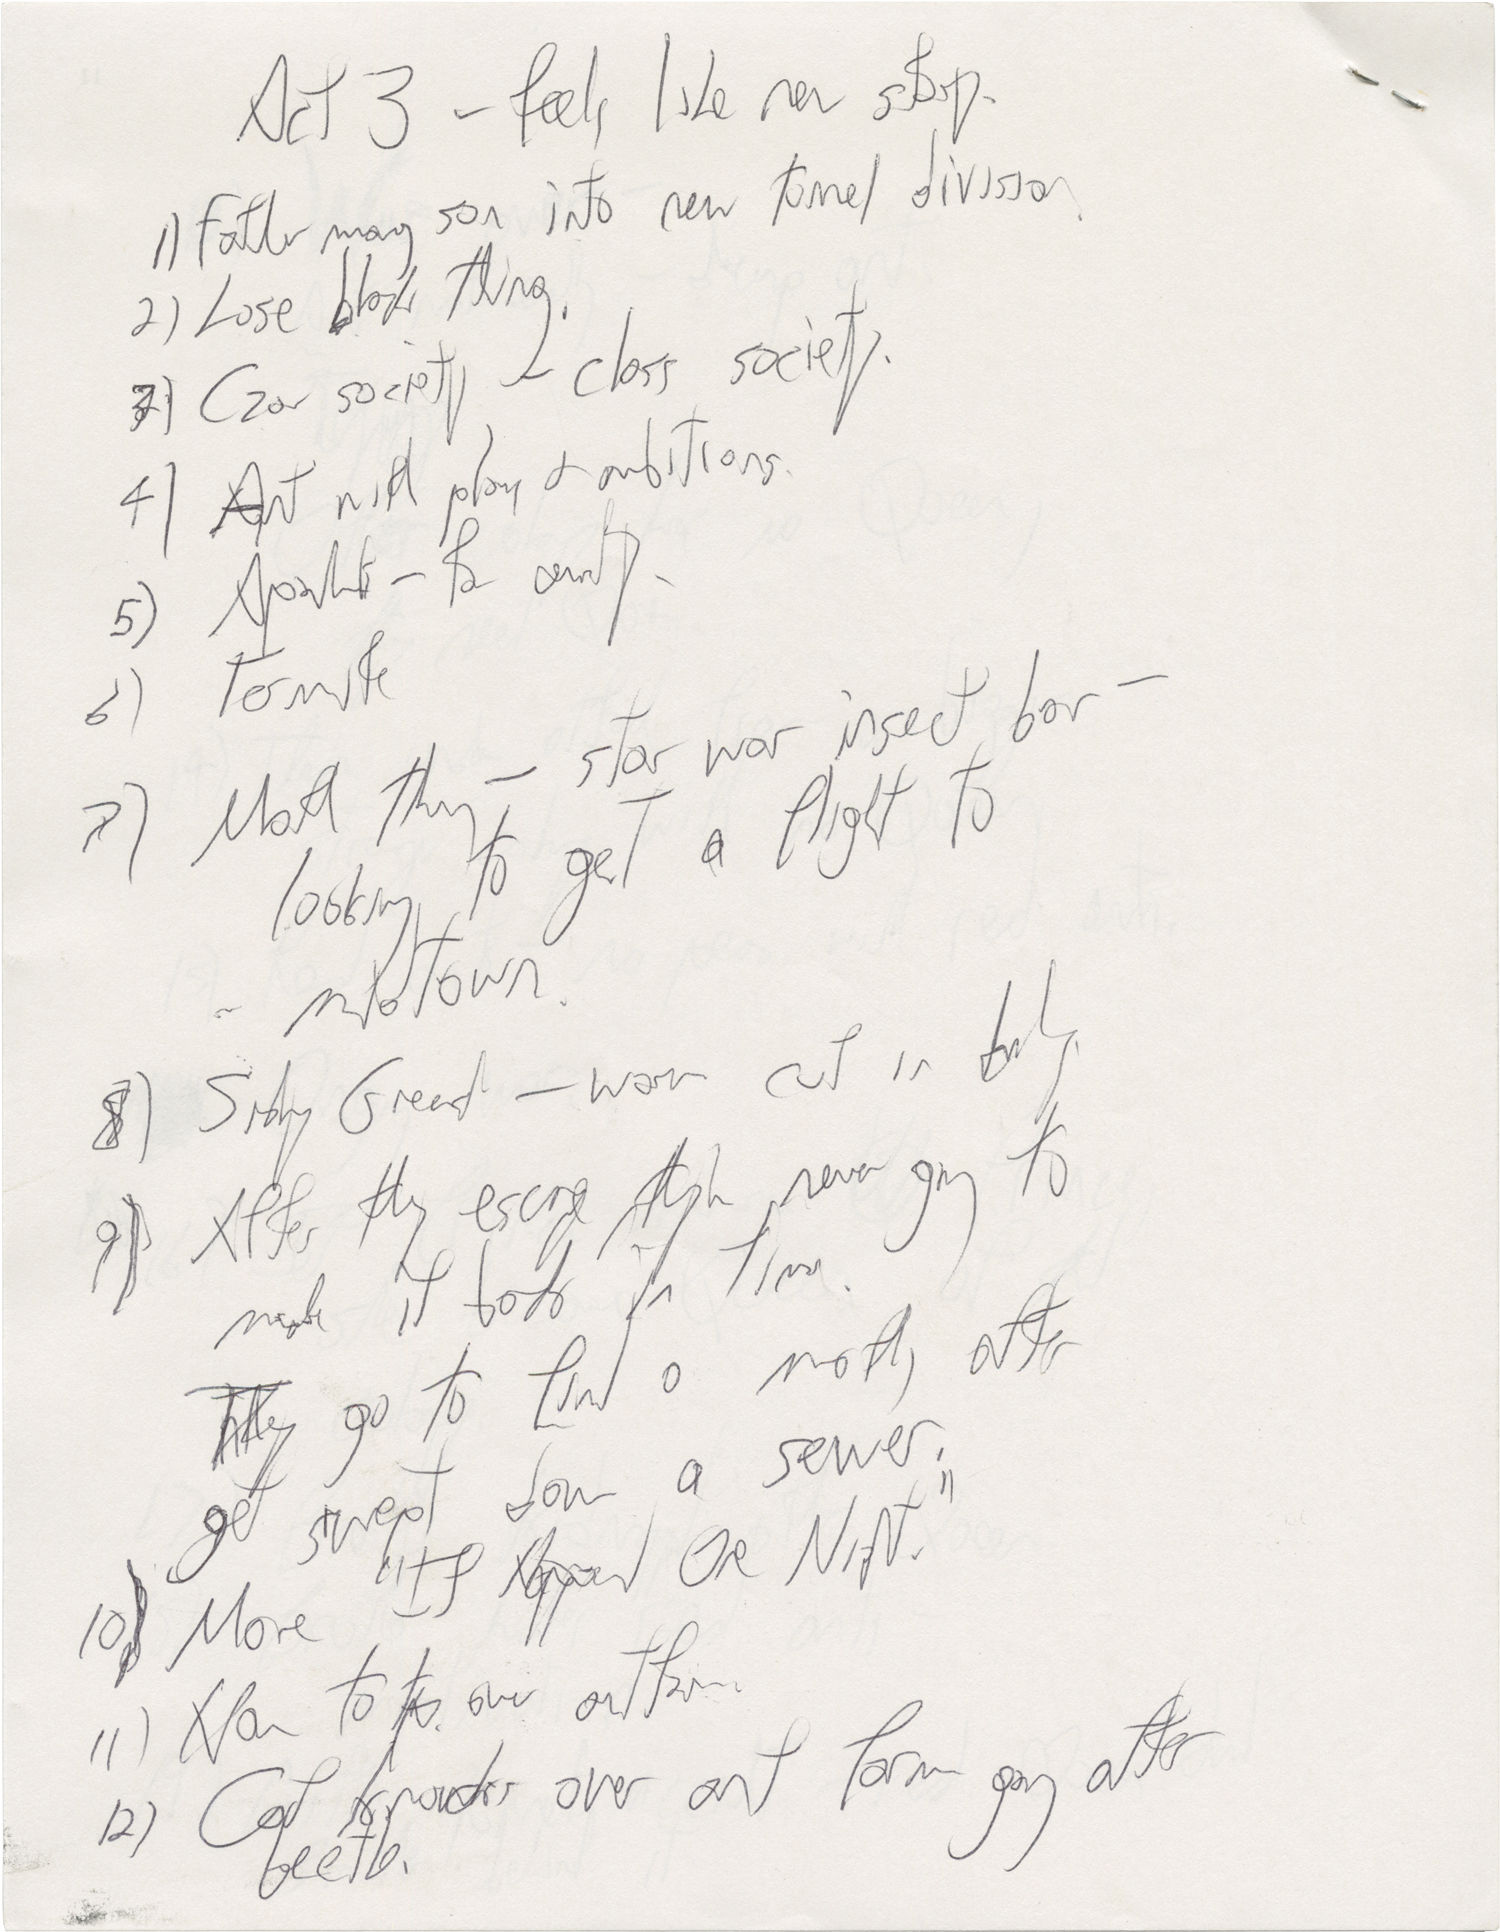 Act 3 - feels like new story.
1) Father may son into new tunnel division.
2) Lose black thing.
3) Czar society - class society.
4) Ant with play & ambitions.
5) - to
6) Termite
7) Moth thing - star war insect bar -
looking to get a flight to
- midtown.
8) Greed - worm cut in
9) After they escape never going to
make it back in time.
They go to find a moth, after
get swept down a sewer.
10) More "It Happened One Night."
11) Plan to over antfarm.
12) Cat knocks over ant farm going after
beetle.